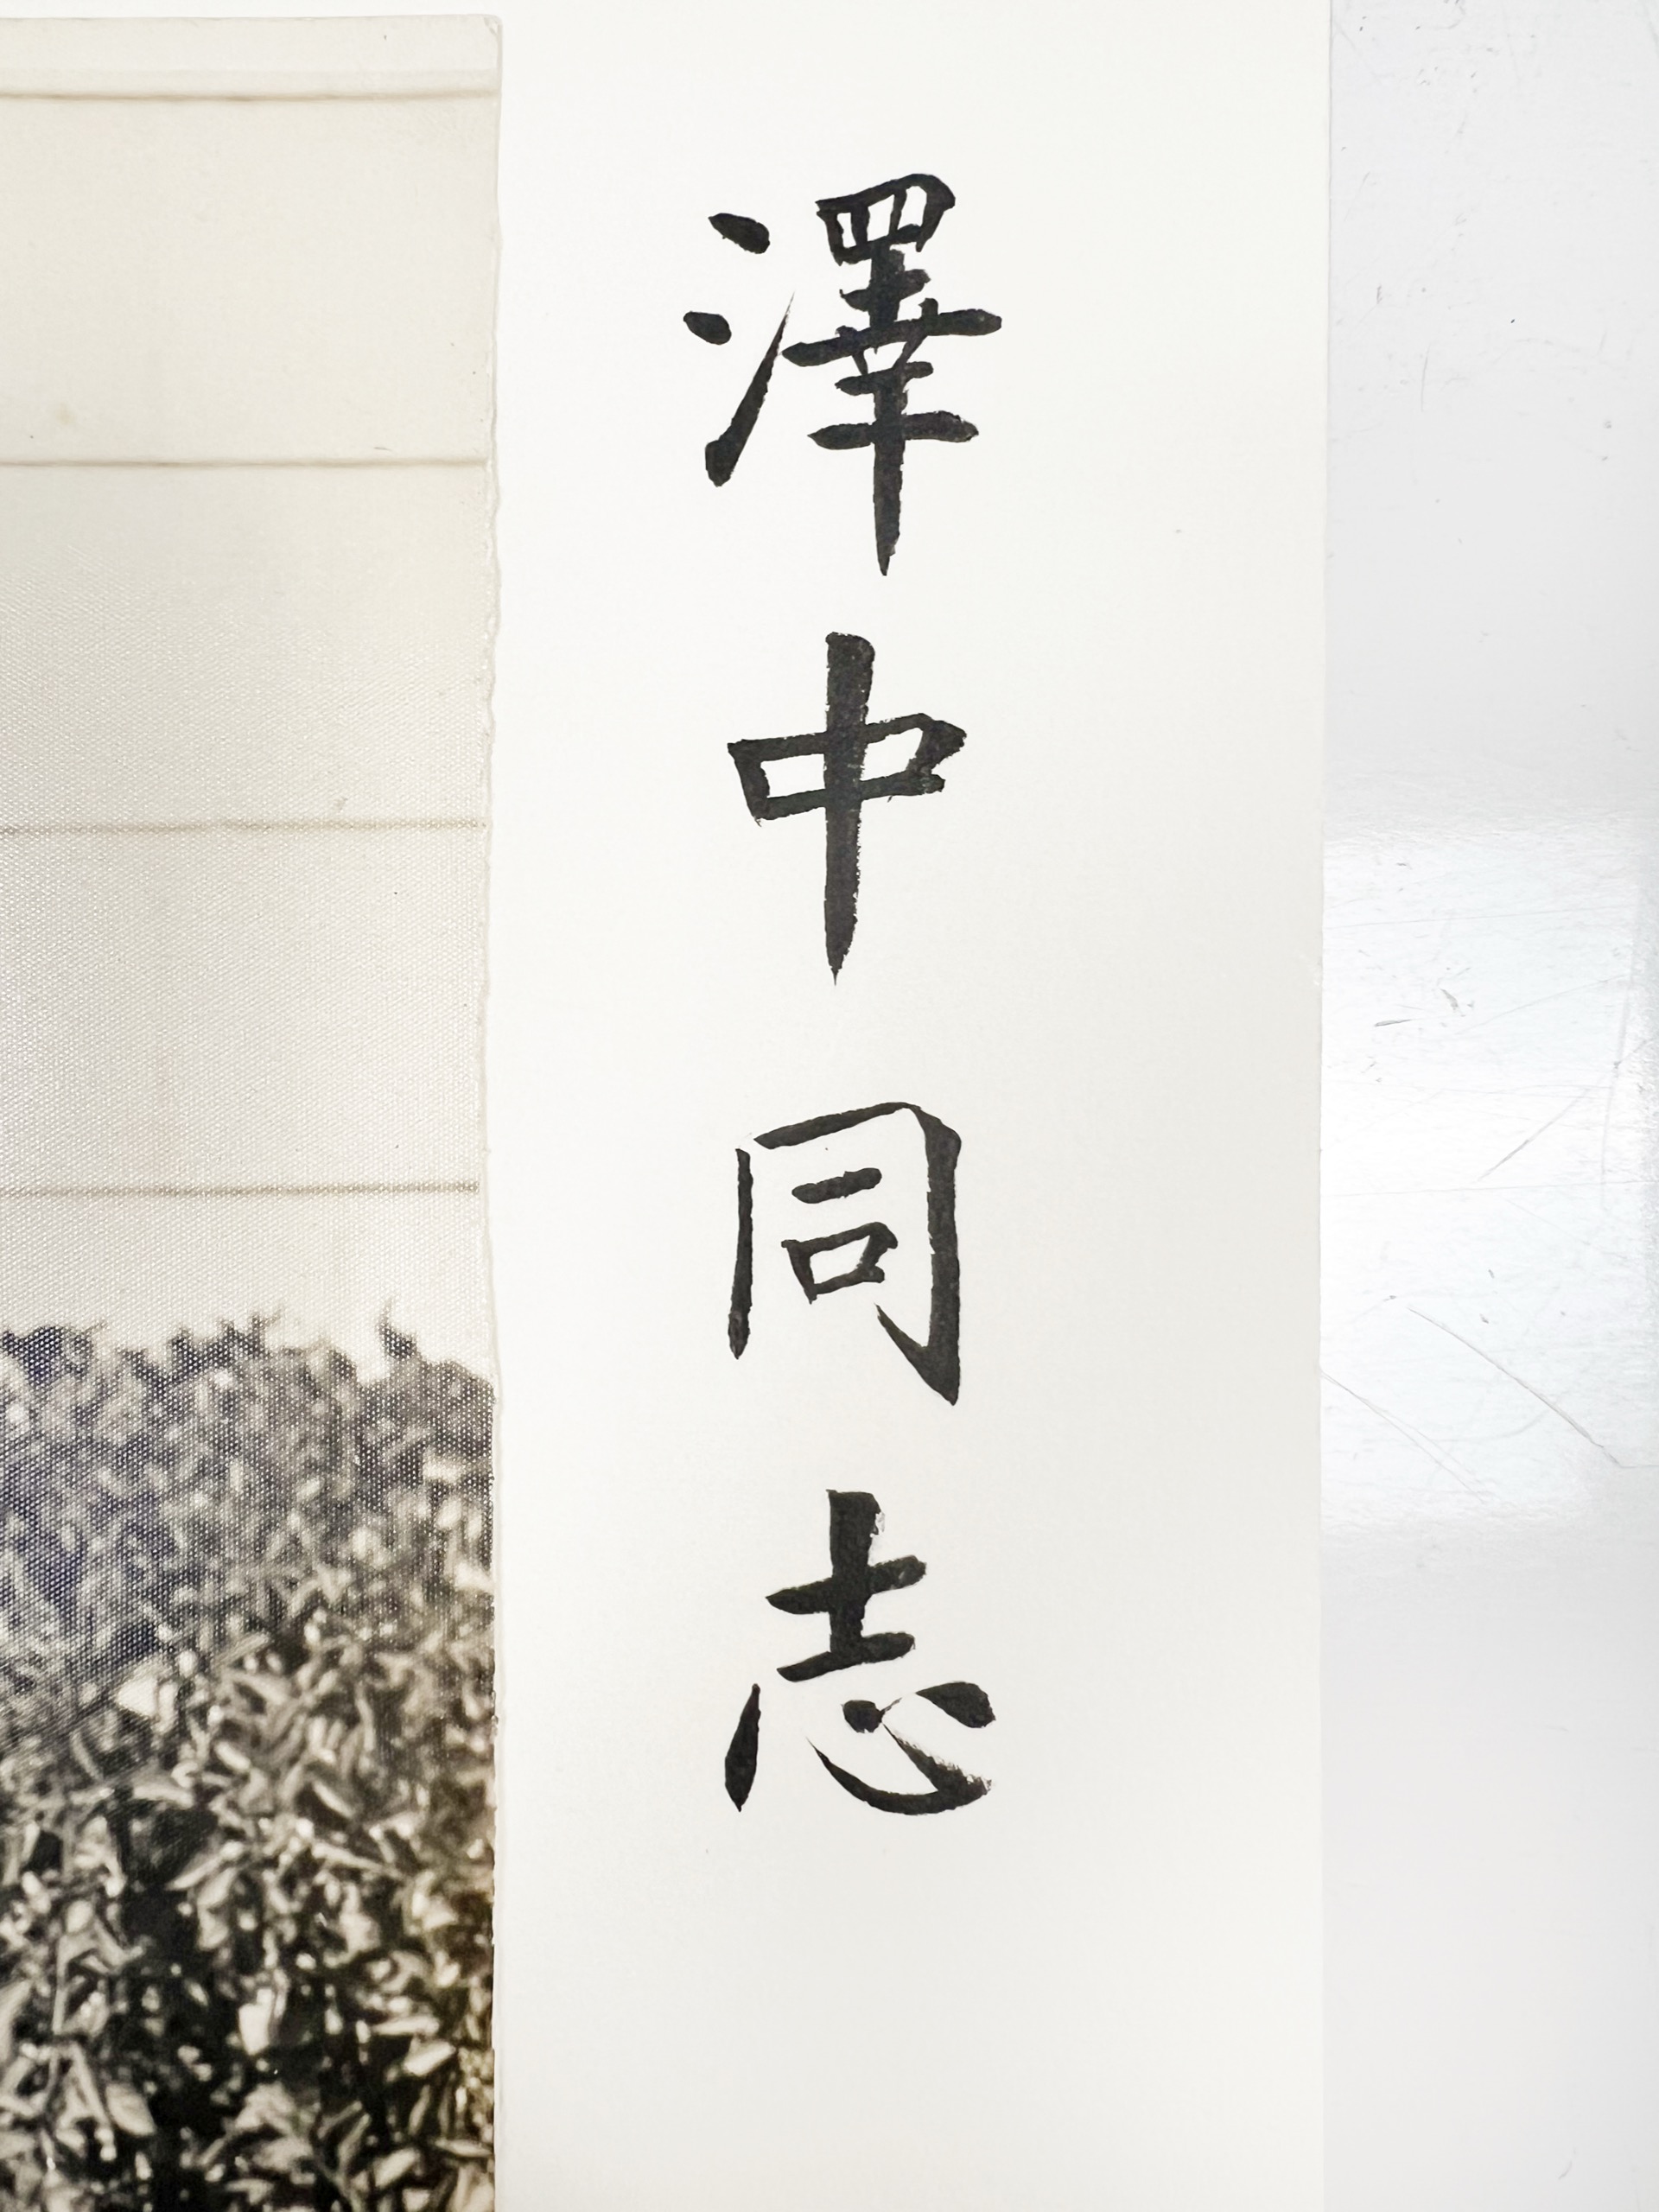 澤中同志